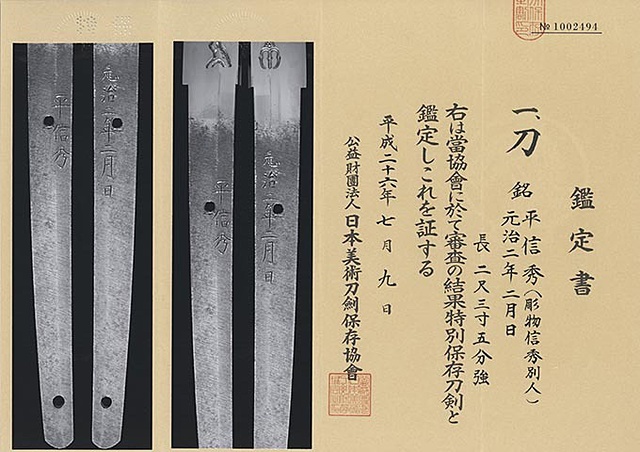 № 1002494
鑑定書
一、刀 銘 平信秀（彫物信秀別人）
元治二年二月日
長 二尺三寸五分強
右は當協會に於て審査の結果特別保存刀剣と
鑑定しこれを証する
平成二十六年七月九日
公益財團法人日本美術刀剣保存協會
元治二年二月日
平信秀
元治二年二月日
平信秀